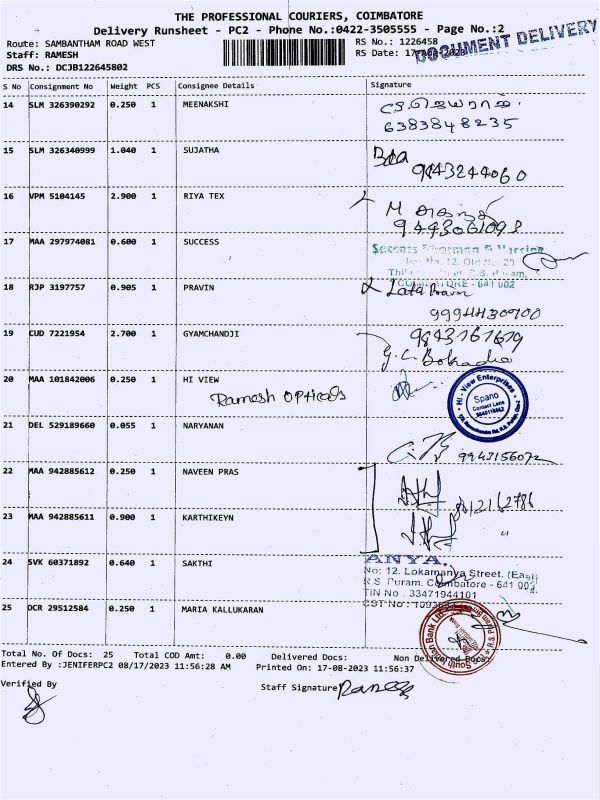 THE PROFESSIONAL COURIERS, COIMBATORE
Delivery Runsheet - PC2 - Phone No.:0422-3505555 - Page No.:2
Route: SAMBANTHAM ROAD WEST
RS No.: 1226458
DOCUMENT DELIVERY
Staff: RAMESH
RS Date:
DRS No.: DCJB122645802
S No Consignment No Weight PCS Consignee Details Signature
14 SLM 326390292 0.250 1 MEENAKSHI
6383848235
15 SLM 326340999 1.040 1 SUJATHA
9843244060
16 VPM 5104145 2.900 1 RIYA TEX
M
9443061093
17 MAA 297974081 0.600 1 SUCCESS
Success
COIMBATORE - 641 002
18 RJP 3197757 0.905 1 PRAVIN
Lata
9994430700
19 CUD 7221954 2.700 1 GYAMCHANDJI
9843161619
G. C. Bokadia
20 MAA 101842006 0.250 1 HI VIEW
Ramesh OPticals
Hi - View Enterprises
Spano
Contact Lens
21 DEL 529189660 0.055 1 NARYANAN
9943156072
22 MAA 942885612 0.250 1 NAVEEN PRAS
23 MAA 942885611 0.900 1 KARTHIKEYN
"
24 SVK 60371892 0.640 1 SAKTHI
ANYA.
No: 12. Lokamanya Street. (East)
R.S. Puram. Coimbatore - 641 002
TIN No . 33471944101
CST No :
25 OCR 29512584 0.250 1 MARIA KALLUKARAN
South Indian Bank Ltd
Total No. Of Docs: 25 Total COD Amt: 0.00 Delivered Docs: Non Delivered Docs:
Entered By :JENIFERPC2 08/17/2023 11:56:28 AM Printed On: 17-08-2023 11:56:37
Verified By
Staff Signature Ramesh